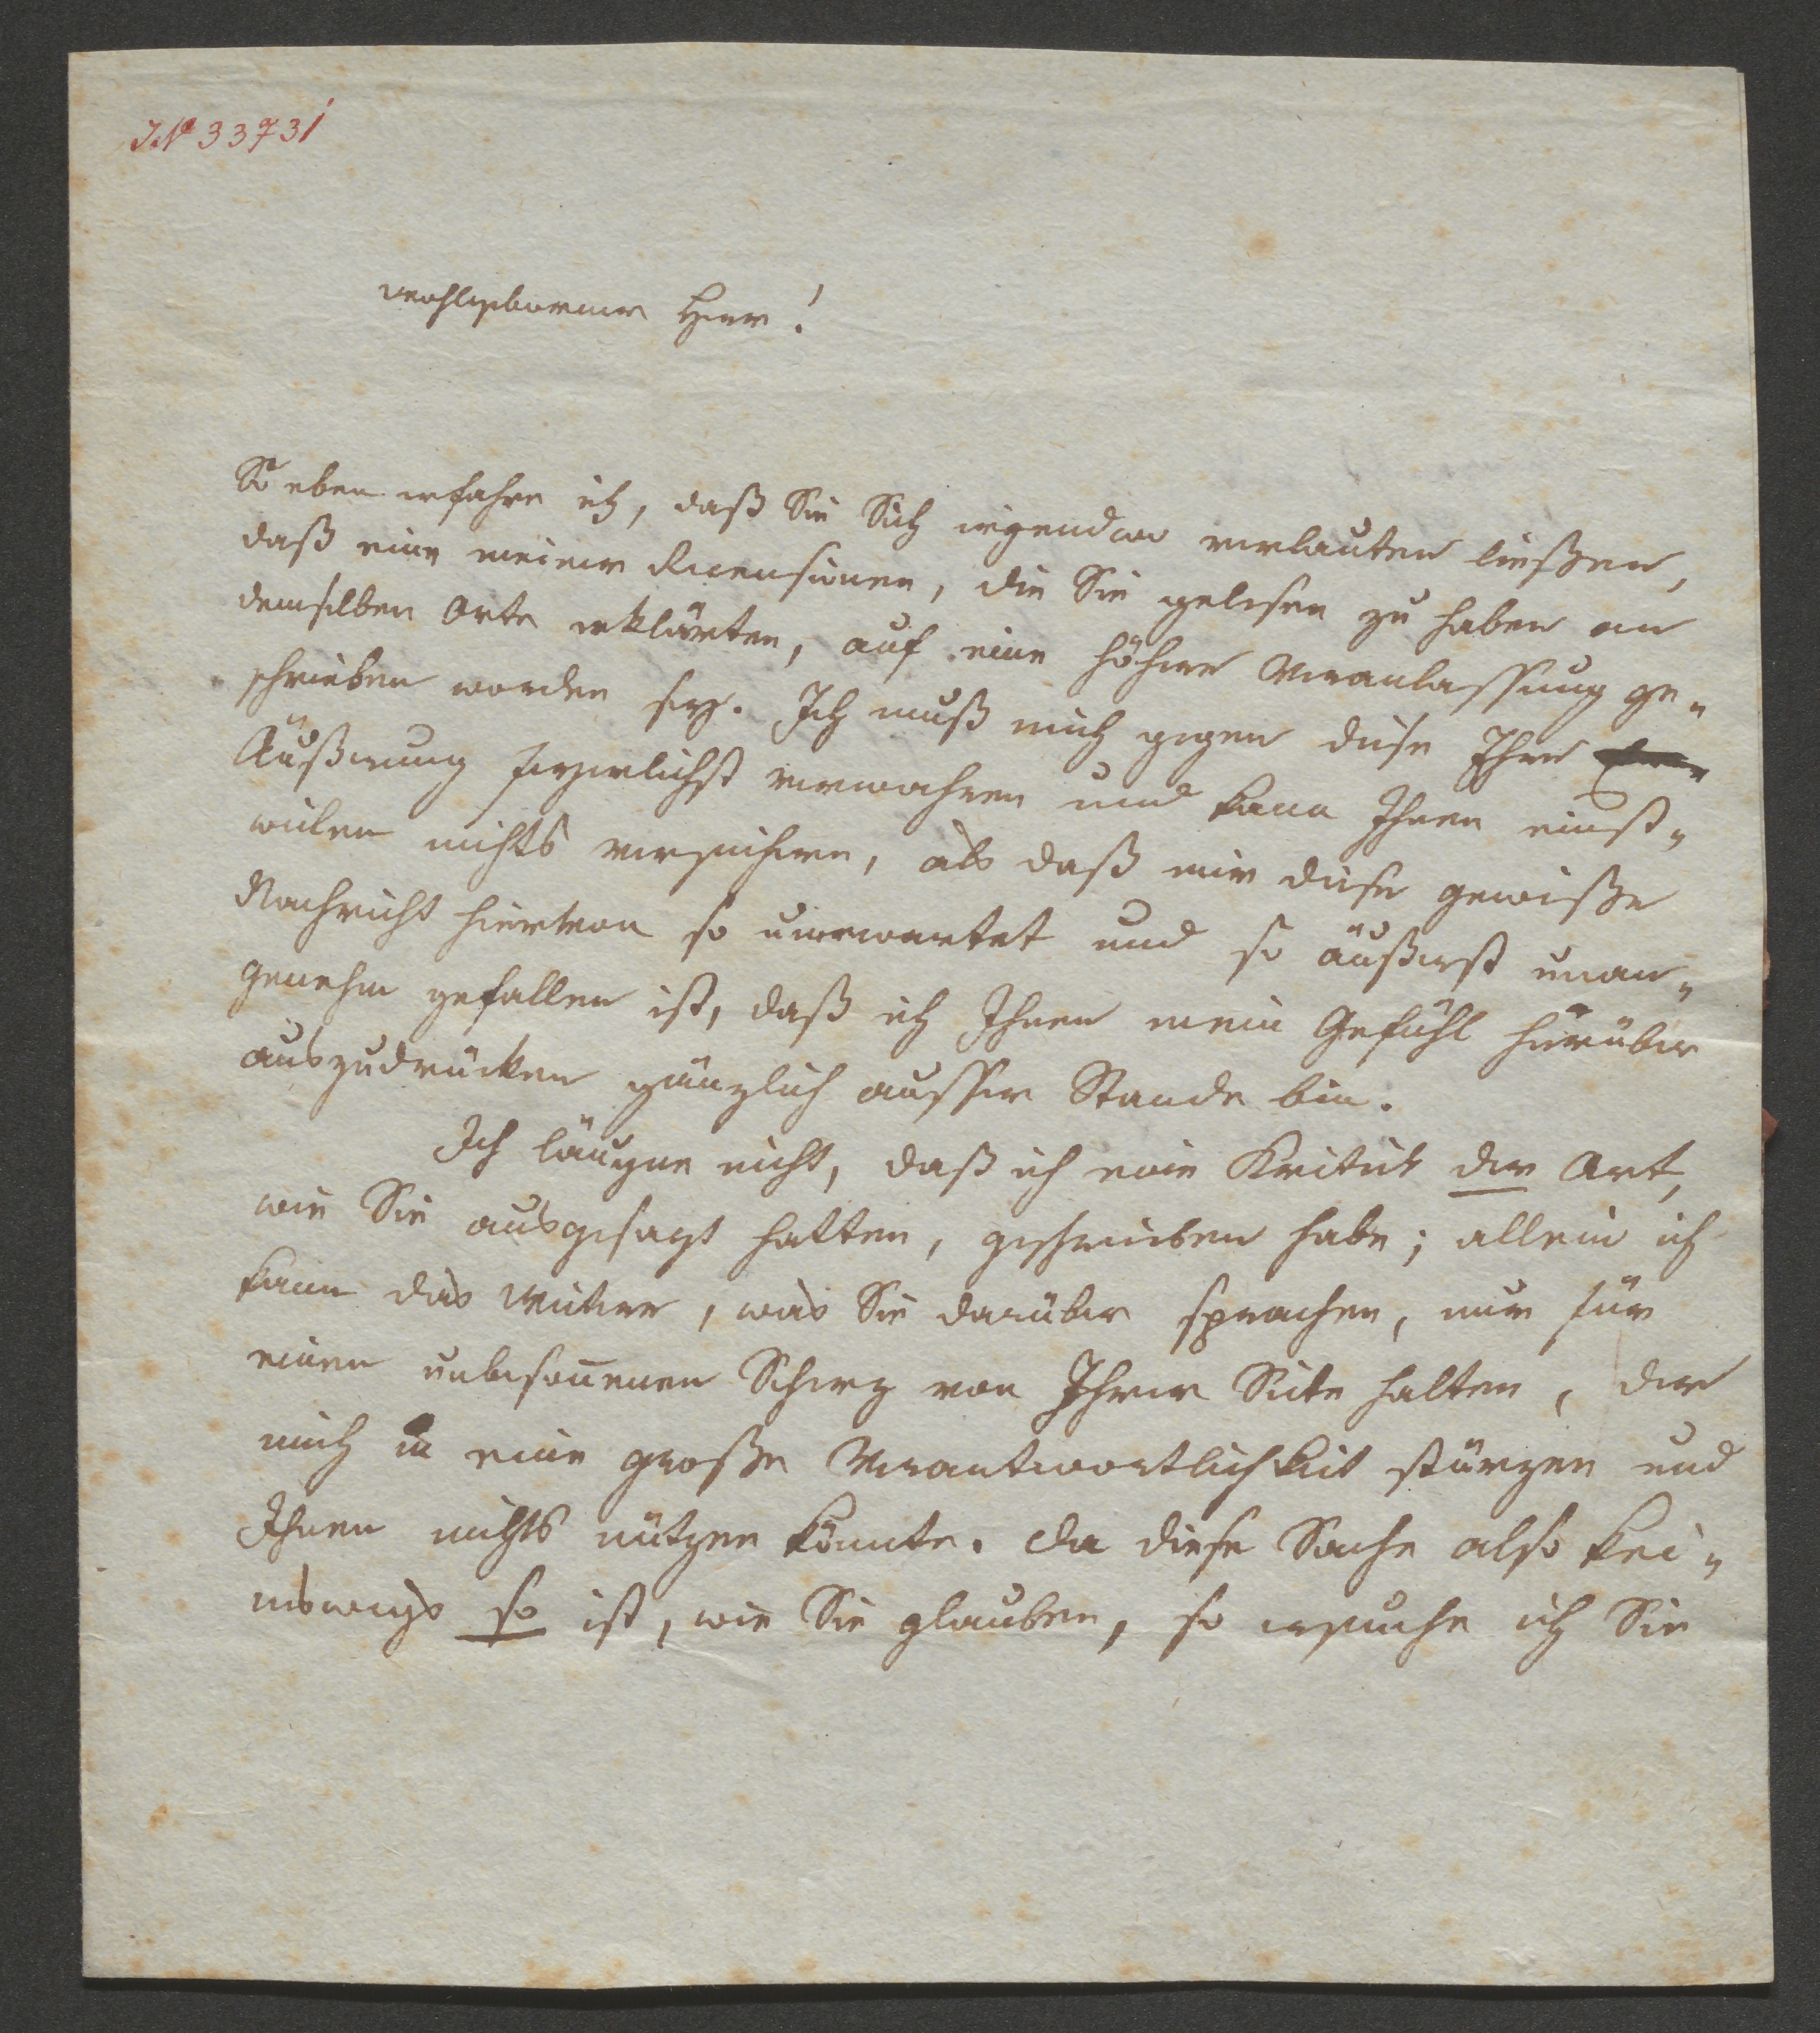 JN 33731
Wohlgeborner Herr!
So eben erfahre ich, daß Sie Sich irgendwo verlauten ließen,
daß eine meiner Recensionen, die Sie gelesen zu haben an
demselben Orte erklärten, auf eine höhere Veranlassung ge-
schrieben worden sey. Ich muß mich gegen diese Ihre
Äußerung feyerlichst verwahren und kann Ihnen einst-
weilen nichts versichern, als daß mir diese gewiße
Nachricht hiervon so unerwartet und so äußerst unan-
genehm gefallen ist, daß ich Ihnen mein Gefühl hierüber
auszudrücken gänzlich ausser Stande bin.
Ich läugne nicht, daß ich eine Kritik der Art,
wie Sie ausgesagt hatten, geschrieben habe; allein ich
kann das Weitere, was Sie darüber sprachen, nur für
einen unbesonnenen Scherz von Ihrer Seite halten, der
mich in eine große Verantwortlichkeit stürzen und
Ihnen nichts nützen könnte. Da diese Sache also kei-
neswegs so ist, wie Sie glauben, so ersuche ich Sie